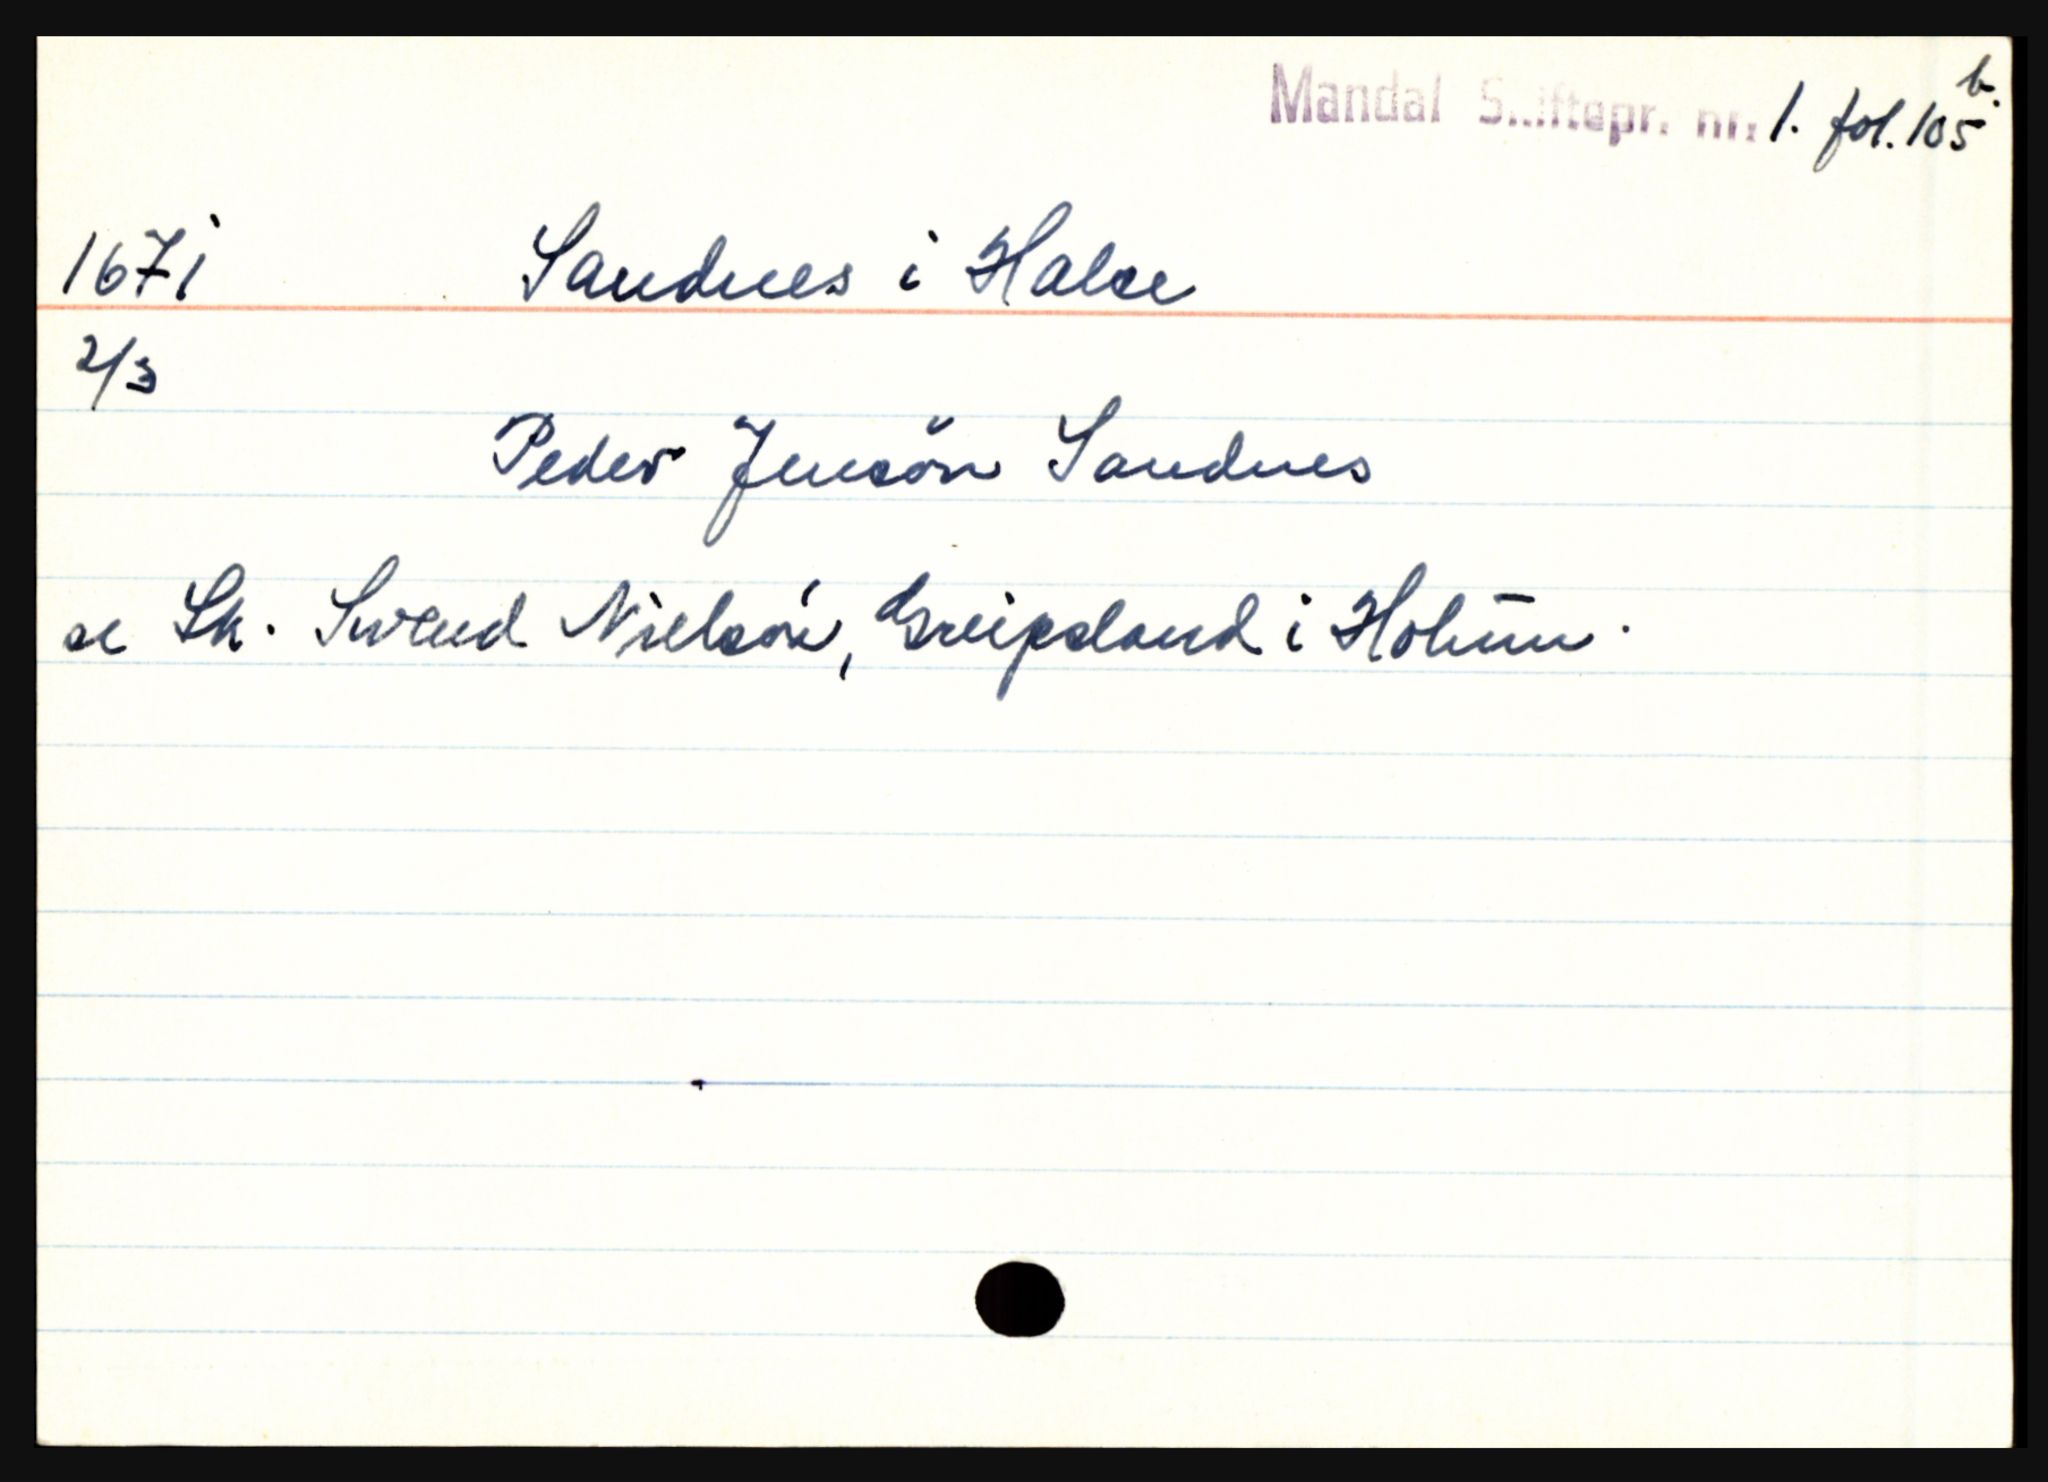 Mandal Skiftepr. nr. 1. fol. 105 b.
1671 Sandnes i Halse
2/3
Peder Jensön Sandnes
se Sk. Svend Nielsön, Greipsland i Holum.